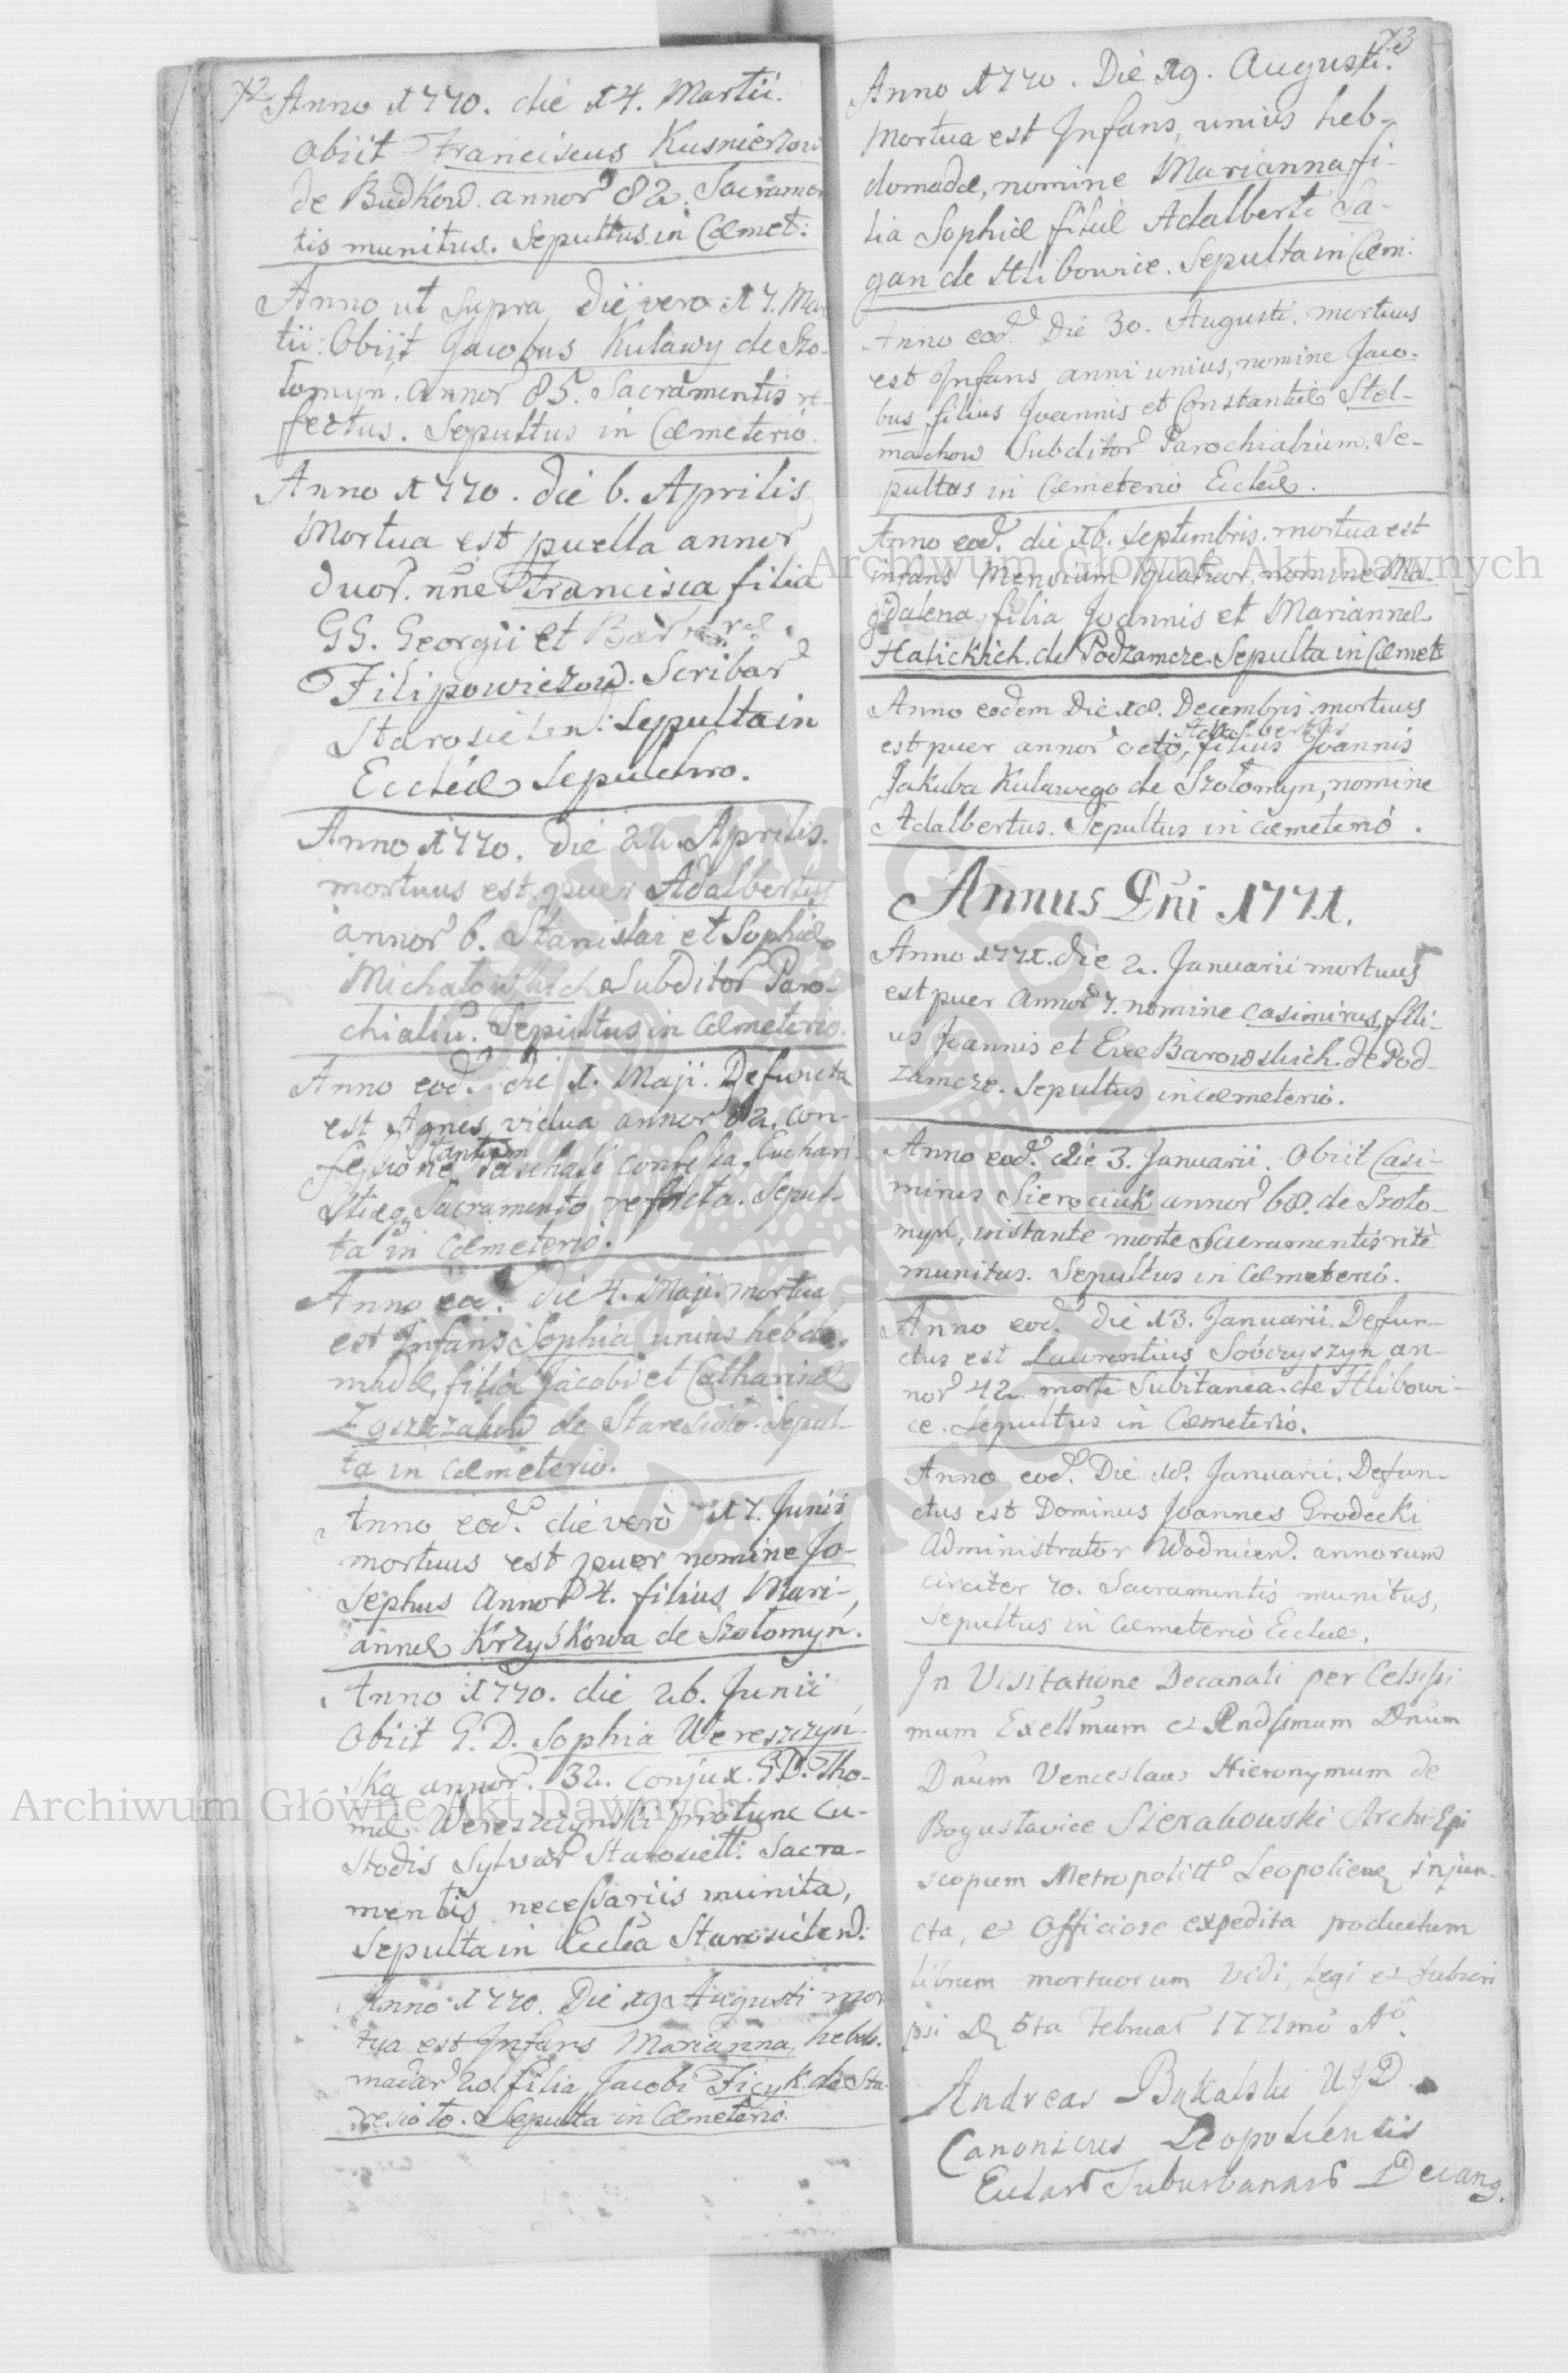 72
Anno 1770. die 14. Martii.
Obiit Franciscus Kusnierzow
de Budkow. annor 82. Sacramen
tis munitus. Sepultus in Cœmet:
Anno ut Supra die vero 17. Mar
tii. Obiit Jacobus Kulawy de Szo-
łomyn. annor 85. Sacramentis re-
fectus. Sepultus in Cœmeterio.
Anno 1770. die 6. Aprilis
Mortua est puella annor
duor. nne Francisca filia
GG. Georgii et Barbaræ
Filipowiczow. Scribar
Starosielen: Sepulta in
Eccleæ Sepulchro.
Anno 1770. die 22. Aprilis.
mortuus est puer Adalbertus
annor 6. Stanislai et Sophiæ
Michałowskich Subditor Paro-
chialiu. Sepultus in Cœmeterio.
Anno eod. die 1. Maji. Defuncta
est Agnes vidua annor 82. con-
fessione tantum Paschali confessa, Euchari
stiæq Sacramento refecta. Sepul-
ta in Cœmeterio.
Anno eod. die 4. Maji. mortua
est Infans Sophia unius hebdo-
madæ, filia Jacobi et Catharinæ
de Staresioło. Sepul-
ta in Cœmeterio.
Anno eod. die verò 17. Junii
mortuus est puer nomine Jo-
sephus annor 4. filius Mari-
annæ Krzyśkowa de Szołomyń.
Anno 1770. die 26. Junii
Obiit G. D. Sophia Wereszczyń-
ska annor. 32. conjux G D. Tho-
mæ Wereszczynski protunc Cu-
stodis Sylvar Starosiell: Sacra-
mentis necessariis munita,
Sepulta in Ecclia Starosielen:
Anno 1770. Die 19 Augusti mor
tua est Infans Marianna, hebdo-
madar 20 filia Jacobi Ficyk de Sta-
resioło. Sepulta in Cœmeterio.
73
Anno 1770. Die 19. Augusti.
Mortua est Infans, unius heb-
domadæ, nomine Marianna fi-
lia Sophiæ filiæ Adalberti Sa-
gan de Hlibowice. Sepulta in Cœm:
Anno eod. Die 30. Augusti. mortuus
est Infans anni unius, nomine Jaco-
bus filius Joannis et Constantiæ Stel-
machow Subditor Parochialium. Se-
pultus in Cœmeterio Eccleæ.
Anno eod. die 16. Septembris. mortua est
infans Mensium quatuor, nomine Ma-
gdalena, filia Joannis et Mariannæ
Halickich. de Podzamcze. Sepulta in Cœmet:
Anno eodem Die 18. Decembris. mortuus
est puer annor octo, Adalbertus filius Joannis
Jakuba Kulawego de Szołomyn, nomine
Adalbertus. Sepultus in Cœmeterio.
Annus Dni 1771.
Anno 1771. die 2. Januarii mortuus
est puer Annor 7. nomine Casimirus, fili-
us Joannis et Evæ Barowskich. de Pod-
zamcze. Sepultus in Cœmeterio.
Anno eod. die 3. Januarii. Obiit Casi-
mirus Sierociuk annor 68. de Szoło-
myn, instante morte Sacramentis ritè
munitus. Sepultus in Cœmeterio.
Anno eod. die 13. Januarii. Defun-
ctus est Laurentius Sobczyszyn an-
nor 42. morte Subitanea. de Hlibowi-
ce. Sepultus in Cœmeterio.
Anno eod. Die 18. Januarii. Defun-
ctus est Dominus Joannes Grodecki
Administrator Wodnicen. annorum
circiter 70. Sacramentis munitus,
Sepultus in Cœmeterio Eccleæ.
In Visitatione Decanali per Celsissi
mum Excellmum et Rndssmum Dnum
Dnum Venceslaus Hieronymum de
Bogusławice Sierakowski Archi-Epi
scopum Metropolitt Leopolien injun-
cta, et Officiose expedita productum
librum mortuorum vidi, legi et subscri
psi D 5ta Februar 1771mo Ao.
Andreas Bąkalski UJD
Canonicus Leopoliensis
Eccłar Suburbanar Decanq.
Archiwum Główne Akt Dawnych
Archiwum Główne Akt Dawnych